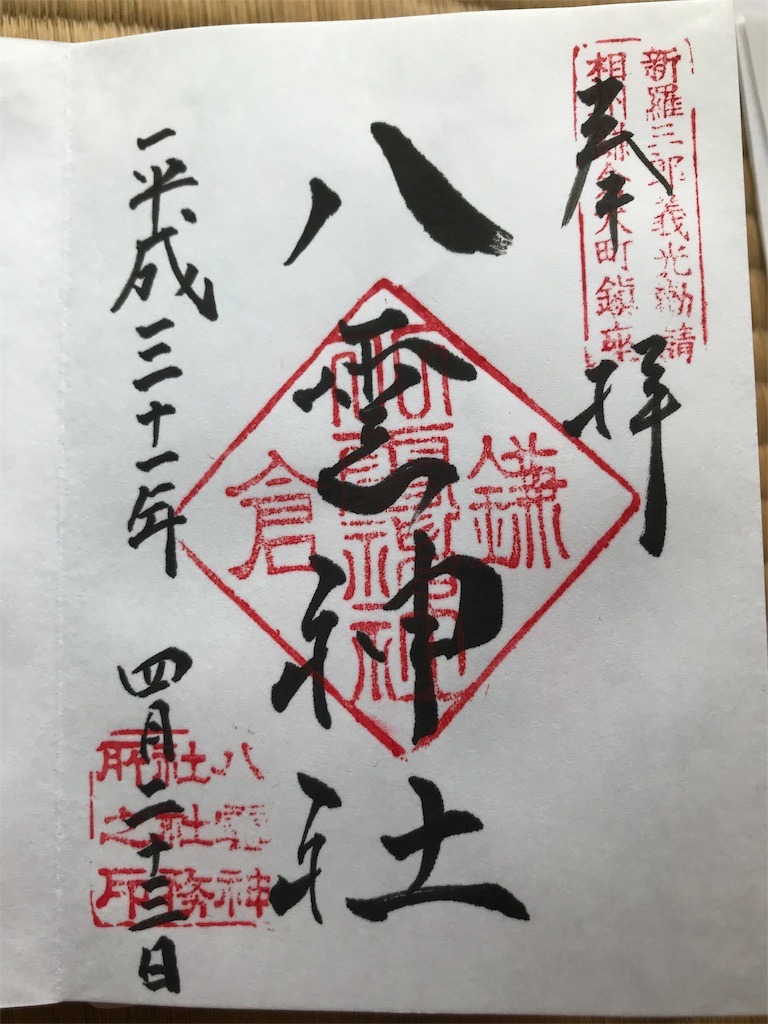 新羅三郎義光勧請
相州鎌倉大町鎮座
奉拝
八雲神社
鎌倉
八雲神社
平成三十一年四月二十三日
八雲神
社社務
所之印